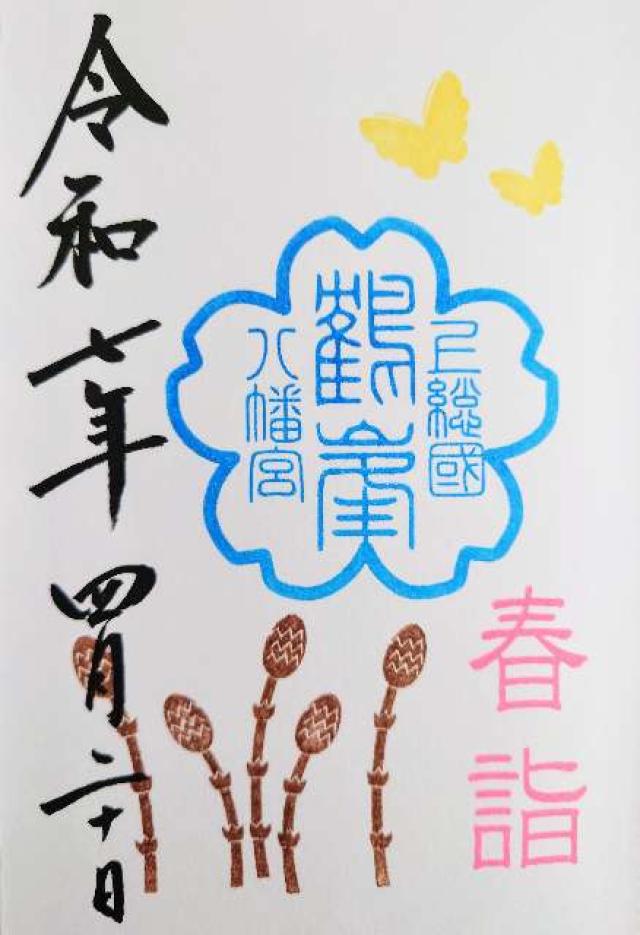 上総國
鶴峯
八幡宮
春詣
令和七年四月二十日